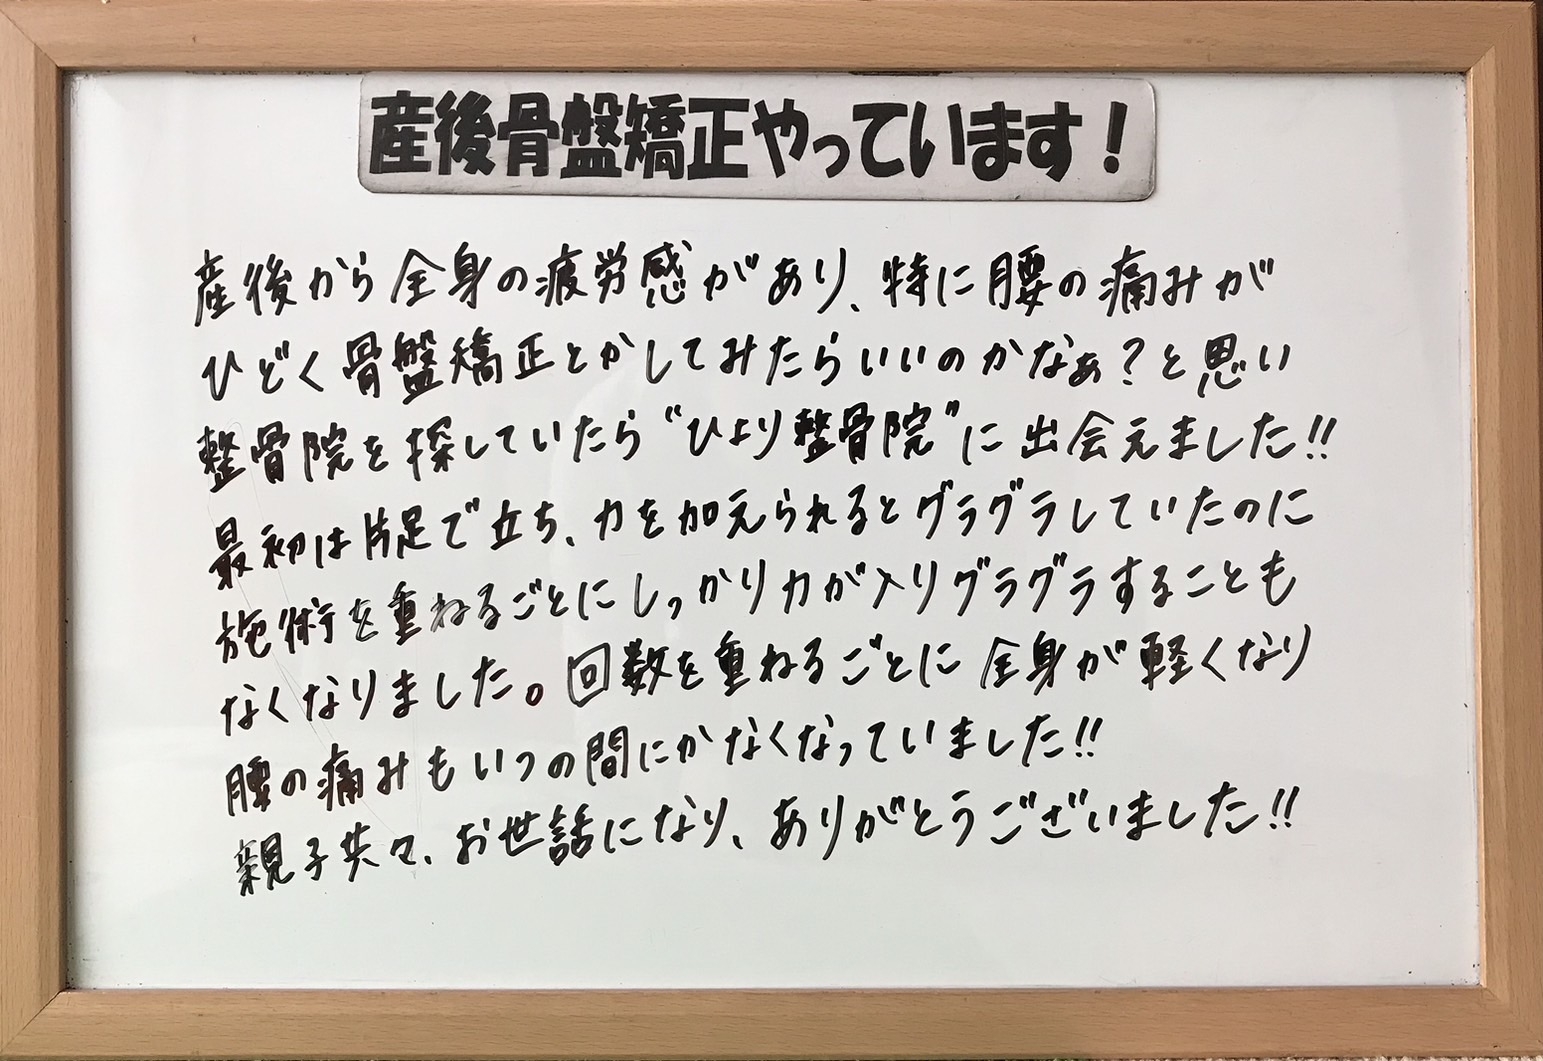 産後骨盤矯正やっています！
産後から全身の疲労感があり、特に腰の痛みが
ひどく骨盤矯正とかしてみたらいいのかなぁ？と思い
整骨院を探していたら“ひより整骨院”に出会えました!!
最初は片足で立ち、力を加えられるとグラグラしていたのに
施術を重ねるごとにしっかり力が入りグラグラすることも
なくなりました。回数を重ねるごとに全身が軽くなり
腰の痛みもいつの間にかなくなっていました!!
親子共々、お世話になり、ありがとうございました!!